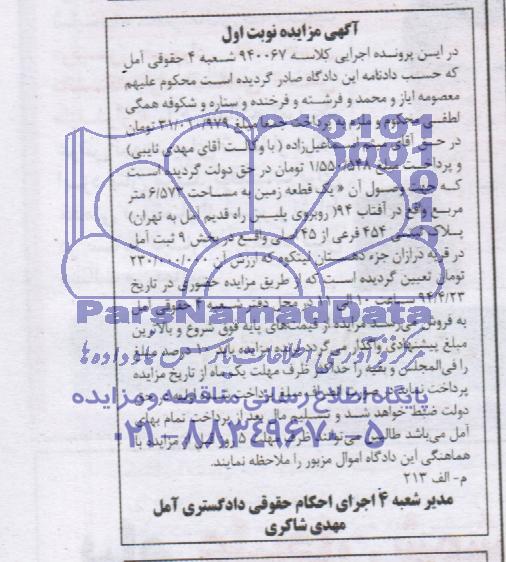 آگهی مزایده نوبت اول
در این پرونده اجرایی کلاسه ۹۴۰۰۶۷ شعبه ۴ حقوقی آمل
که حسب دادنامه این دادگاه صادر گردیده است محکوم علیهم
معصومه ایاز و محمد و فرشته و فرخنده و ستاره و شکوفه همگی
لطفی محکوم و ملزم به پرداخت مبلغ تومان
در حق آقای (با وکالت آقای مهدی نایبی)
و پرداخت مبلغ تومان در حق دولت گردیده است
که جهت وصول آن « یک قطعه زمین به مساحت ۶/۵۷۳ متر
مربع واقع در آفتاب ۹۴( روبروی پلیس راه قدیم آمل به تهران)
پلاک ثبتی ۴۵۴ فرعی از ۴۵ اصلی واقع در بخش ۹ ثبت آمل
در قریه درازان جزء دهستان لیتکوه که ارزش آن
تومان تعیین گردیده است که از طریق مزایده حضوری در تاریخ
۹۴/۴/۲۳ ساعت ۱۰ الی ۱۱ در محل دفتر شعبه ۴ حقوقی آمل
به فروش می‌رسد مزایده از قیمت‌های پایه فوق شروع و بالاترین
مبلغ پیشنهادی واگذار می‌گردد برنده مزایده باید ۱۰ درصد مبلغ
را فی‌المجلس و بقیه را حداکثر ظرف مهلت یکماه از تاریخ مزایده
پرداخت نماید در صورت انصراف مبلغ پرداخت
دولت ضبط خواهد شد و تسلیم مال بعد از پرداخت تمام بهای
آمل می‌باشد طالبین می‌توانند ظرف مهلت ۵ روز قبل از مزایده با
هماهنگی این دادگاه اموال مزبور را ملاحظه نمایند.
م- الف ۲۱۳
مدیر شعبه ۴ اجرای احکام حقوقی دادگستری آمل
مهدی شاکری
ParsNamadData
مرکز فرآوری اطلاعات پارس نماد داده ها
پایگاه اطلاع رسانی مناقصه و مزایده
۰۲۱-۸۸۳۴۹۶۷۰-۵